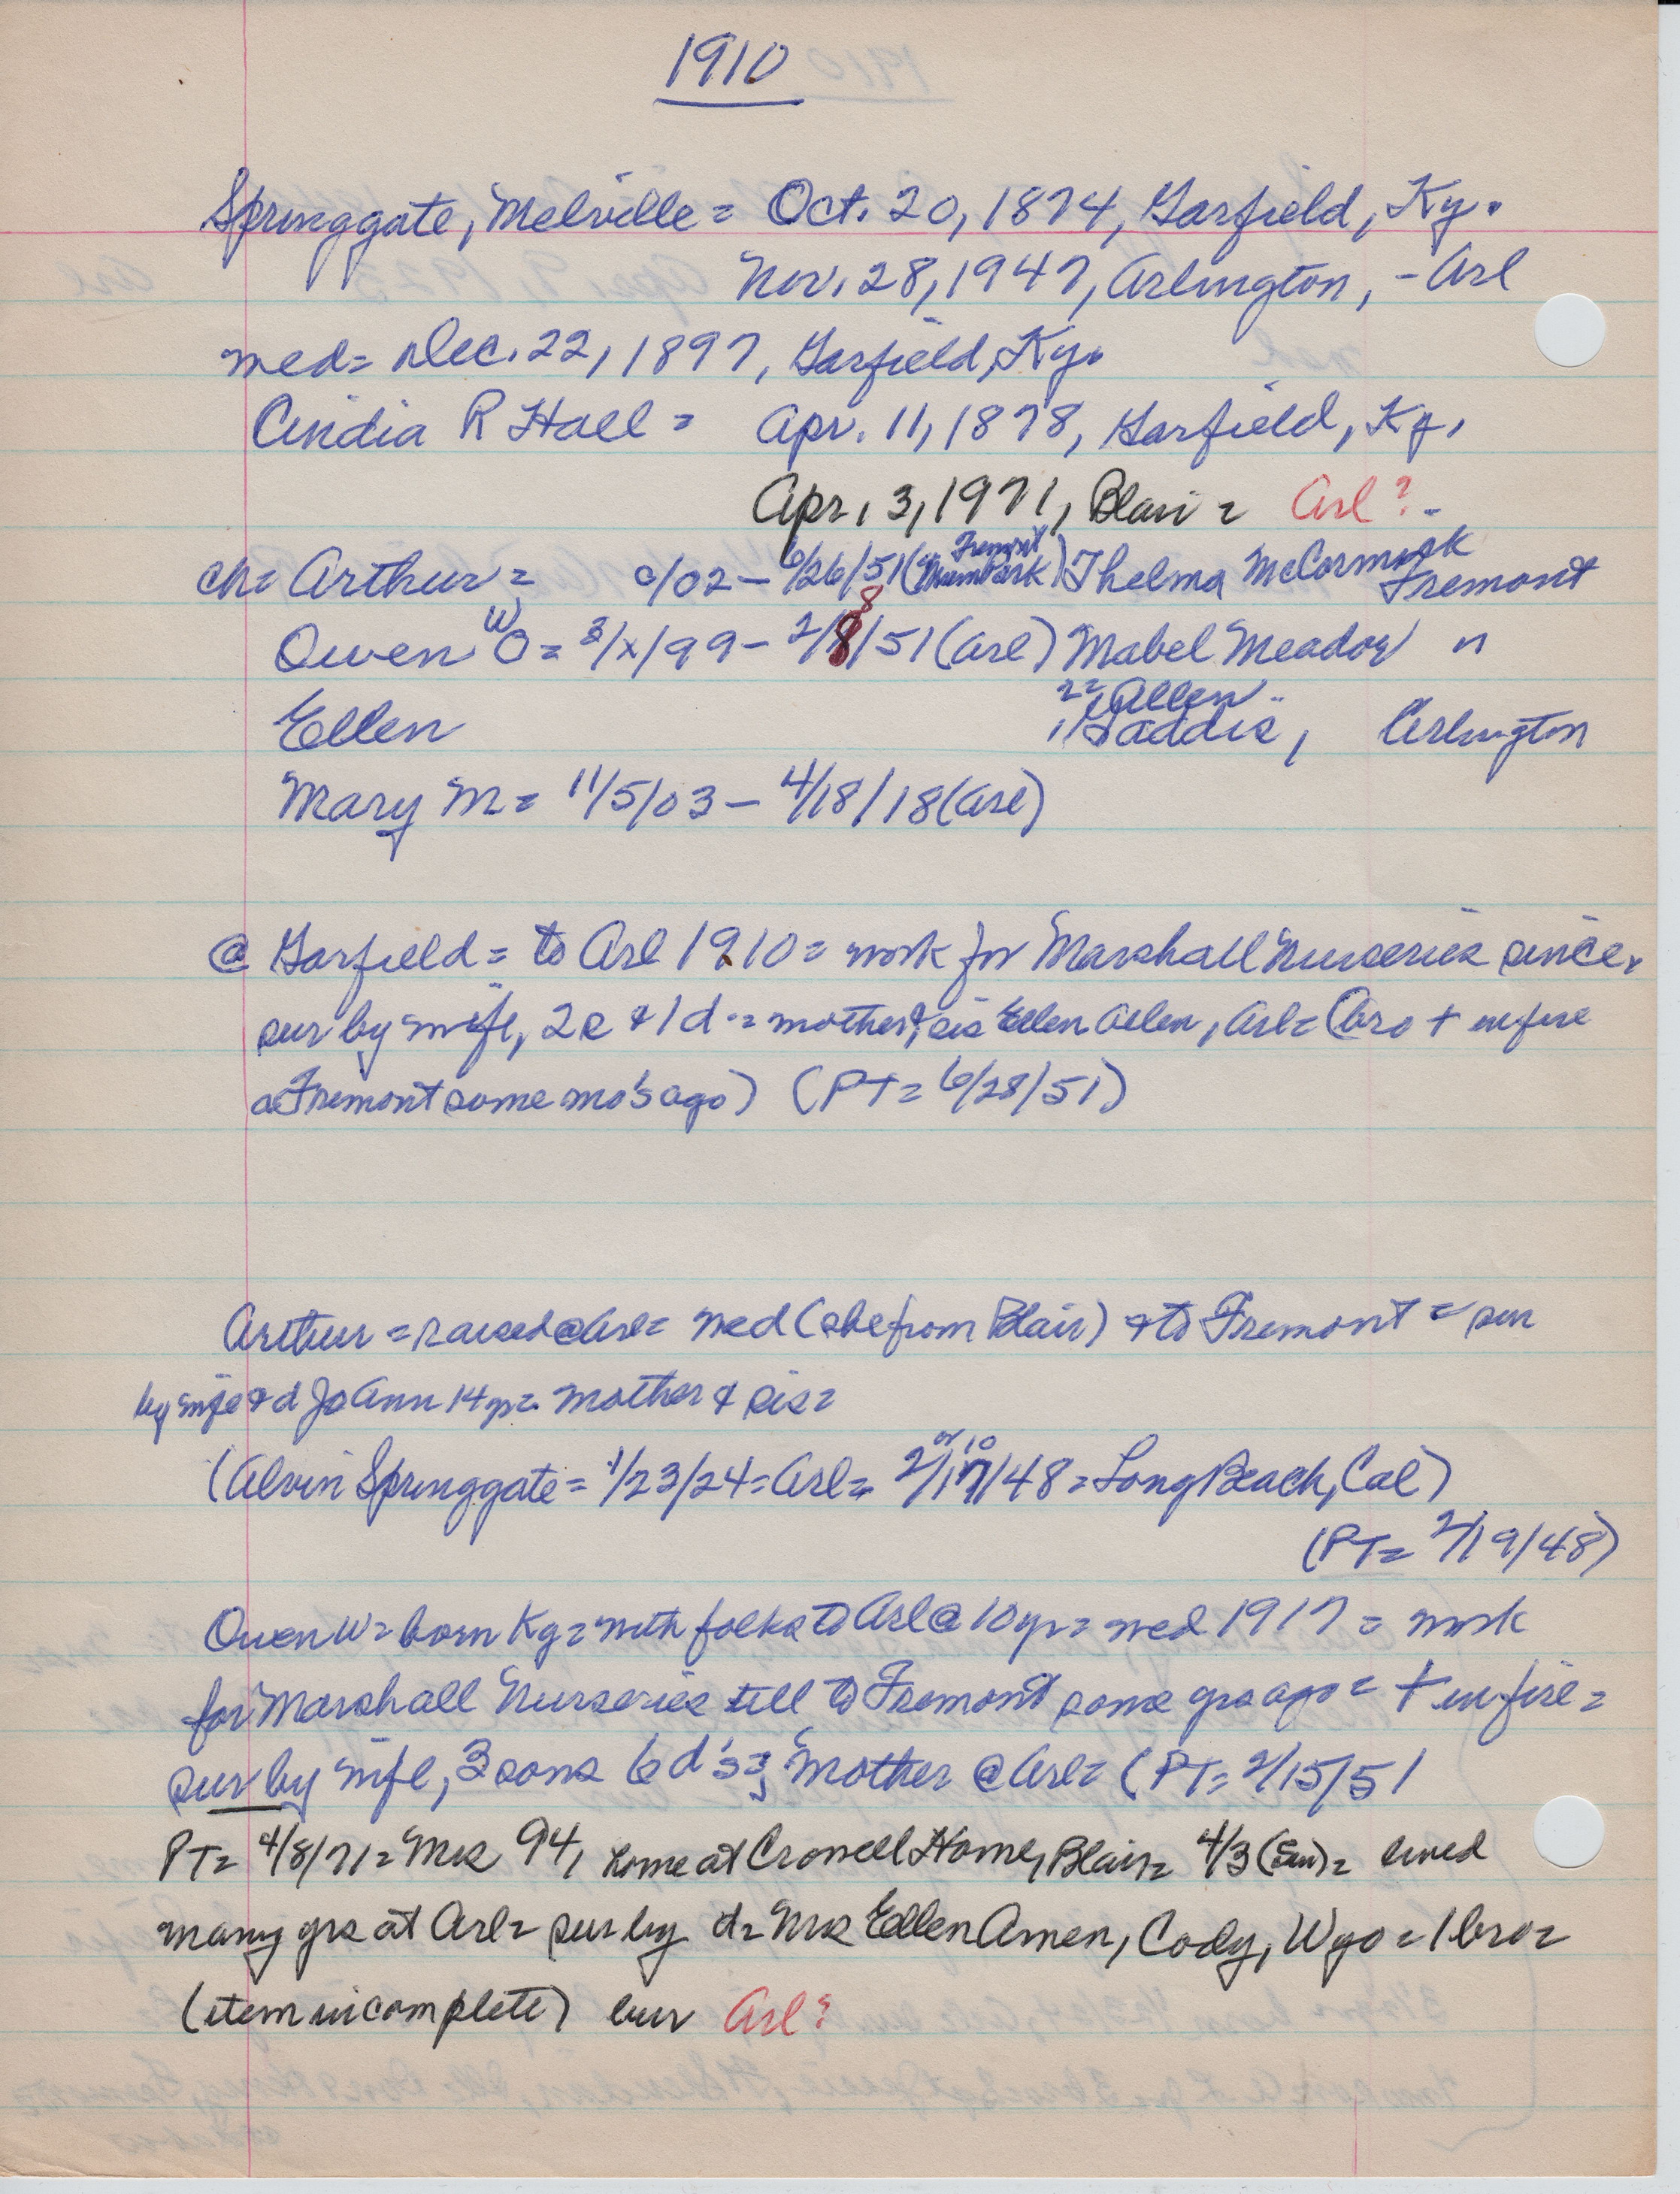 1910
Springgate, Melville = Oct. 20, 1874, Garfield, Ky.
Nov. 28, 1947, Arlington, - Arl
med = Dec. 22, 1897, Garfield, Ky.
Cindia R Hall = Apr. 11, 1878, Garfield, Ky.
Apr. 3, 1971, Blair = Arl?
Fremont
ch = Arthur = c/02 - 6/26/51 ( Park) Thelma McCormick Fremont
8
Owen W O = 3/x/99 - 2/8/51 (Arl) Mabel Meador "
2= Allen
Ellen 1/ Gaddis, Arlington
Mary M = 11/5/03 - 4/18/18 (Arl)
@ Garfield = to Arl 1910 = work for Marshall Nurseries since.
sur by wife, 2 s & 1 d = mother & sis Ellen Allen, Arl = (bro + in fire
a Fremont some mo's ago) (PT = 6/28/51)
Arthur = raised @ Arl = med (she from Blair) & to Fremont = sur
by wife & d JoAnn 14 yr = mother & sis =
or 10
(Alvin Springgate = 1/23/24 = Arl = 2/17/48 = Long Beach, Cal)
(PT = 2/19/48)
Owen W = born Ky = with folks to Arl @ 10 yr = med 1917 = work
for Marshall Nurseries till to Fremont some yrs ago = + in fire =
sur by wife, 3 sons 6 d's = Mother @ Arl = (PT = 2/15/51
PT = 4/8/71 = Mrs 94, home at Crowell Home, Blair = 4/3 (Sun) = lived
many yrs at Arl = sur by d = Mrs Ellen Amen, Cody, Wyo = 1 bro =
(item incomplete) bur Arl?